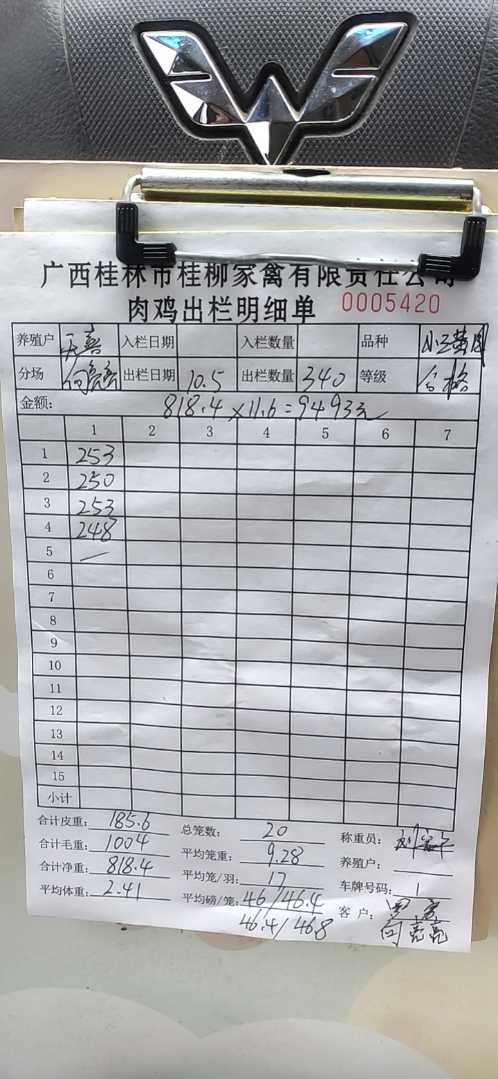 广西桂林市桂柳家禽有限责任公司
肉鸡出栏明细单 0005420
养殖户 天喜 入栏日期 入栏数量 品种
分场 向亮亮 出栏日期 10.5 出栏数量 340 等级 合格
金额: 818.4×11.6=9493元
1 2 3 4 5 6 7
1 253
2 250
3 253
4 248
5 —
6
7
8
9
10
11
12
13
14
15
小计
合计皮重: 185.6 总笼数: 20 称重员:
合计毛重: 1004 平均笼重: 9.28 养殖户:
合计净重: 818.4 平均笼/羽: 17 车牌号码: 1
平均体重: 2.41 平均磅/笼: 46/46.4 客户:
46.4/46.8 向亮亮